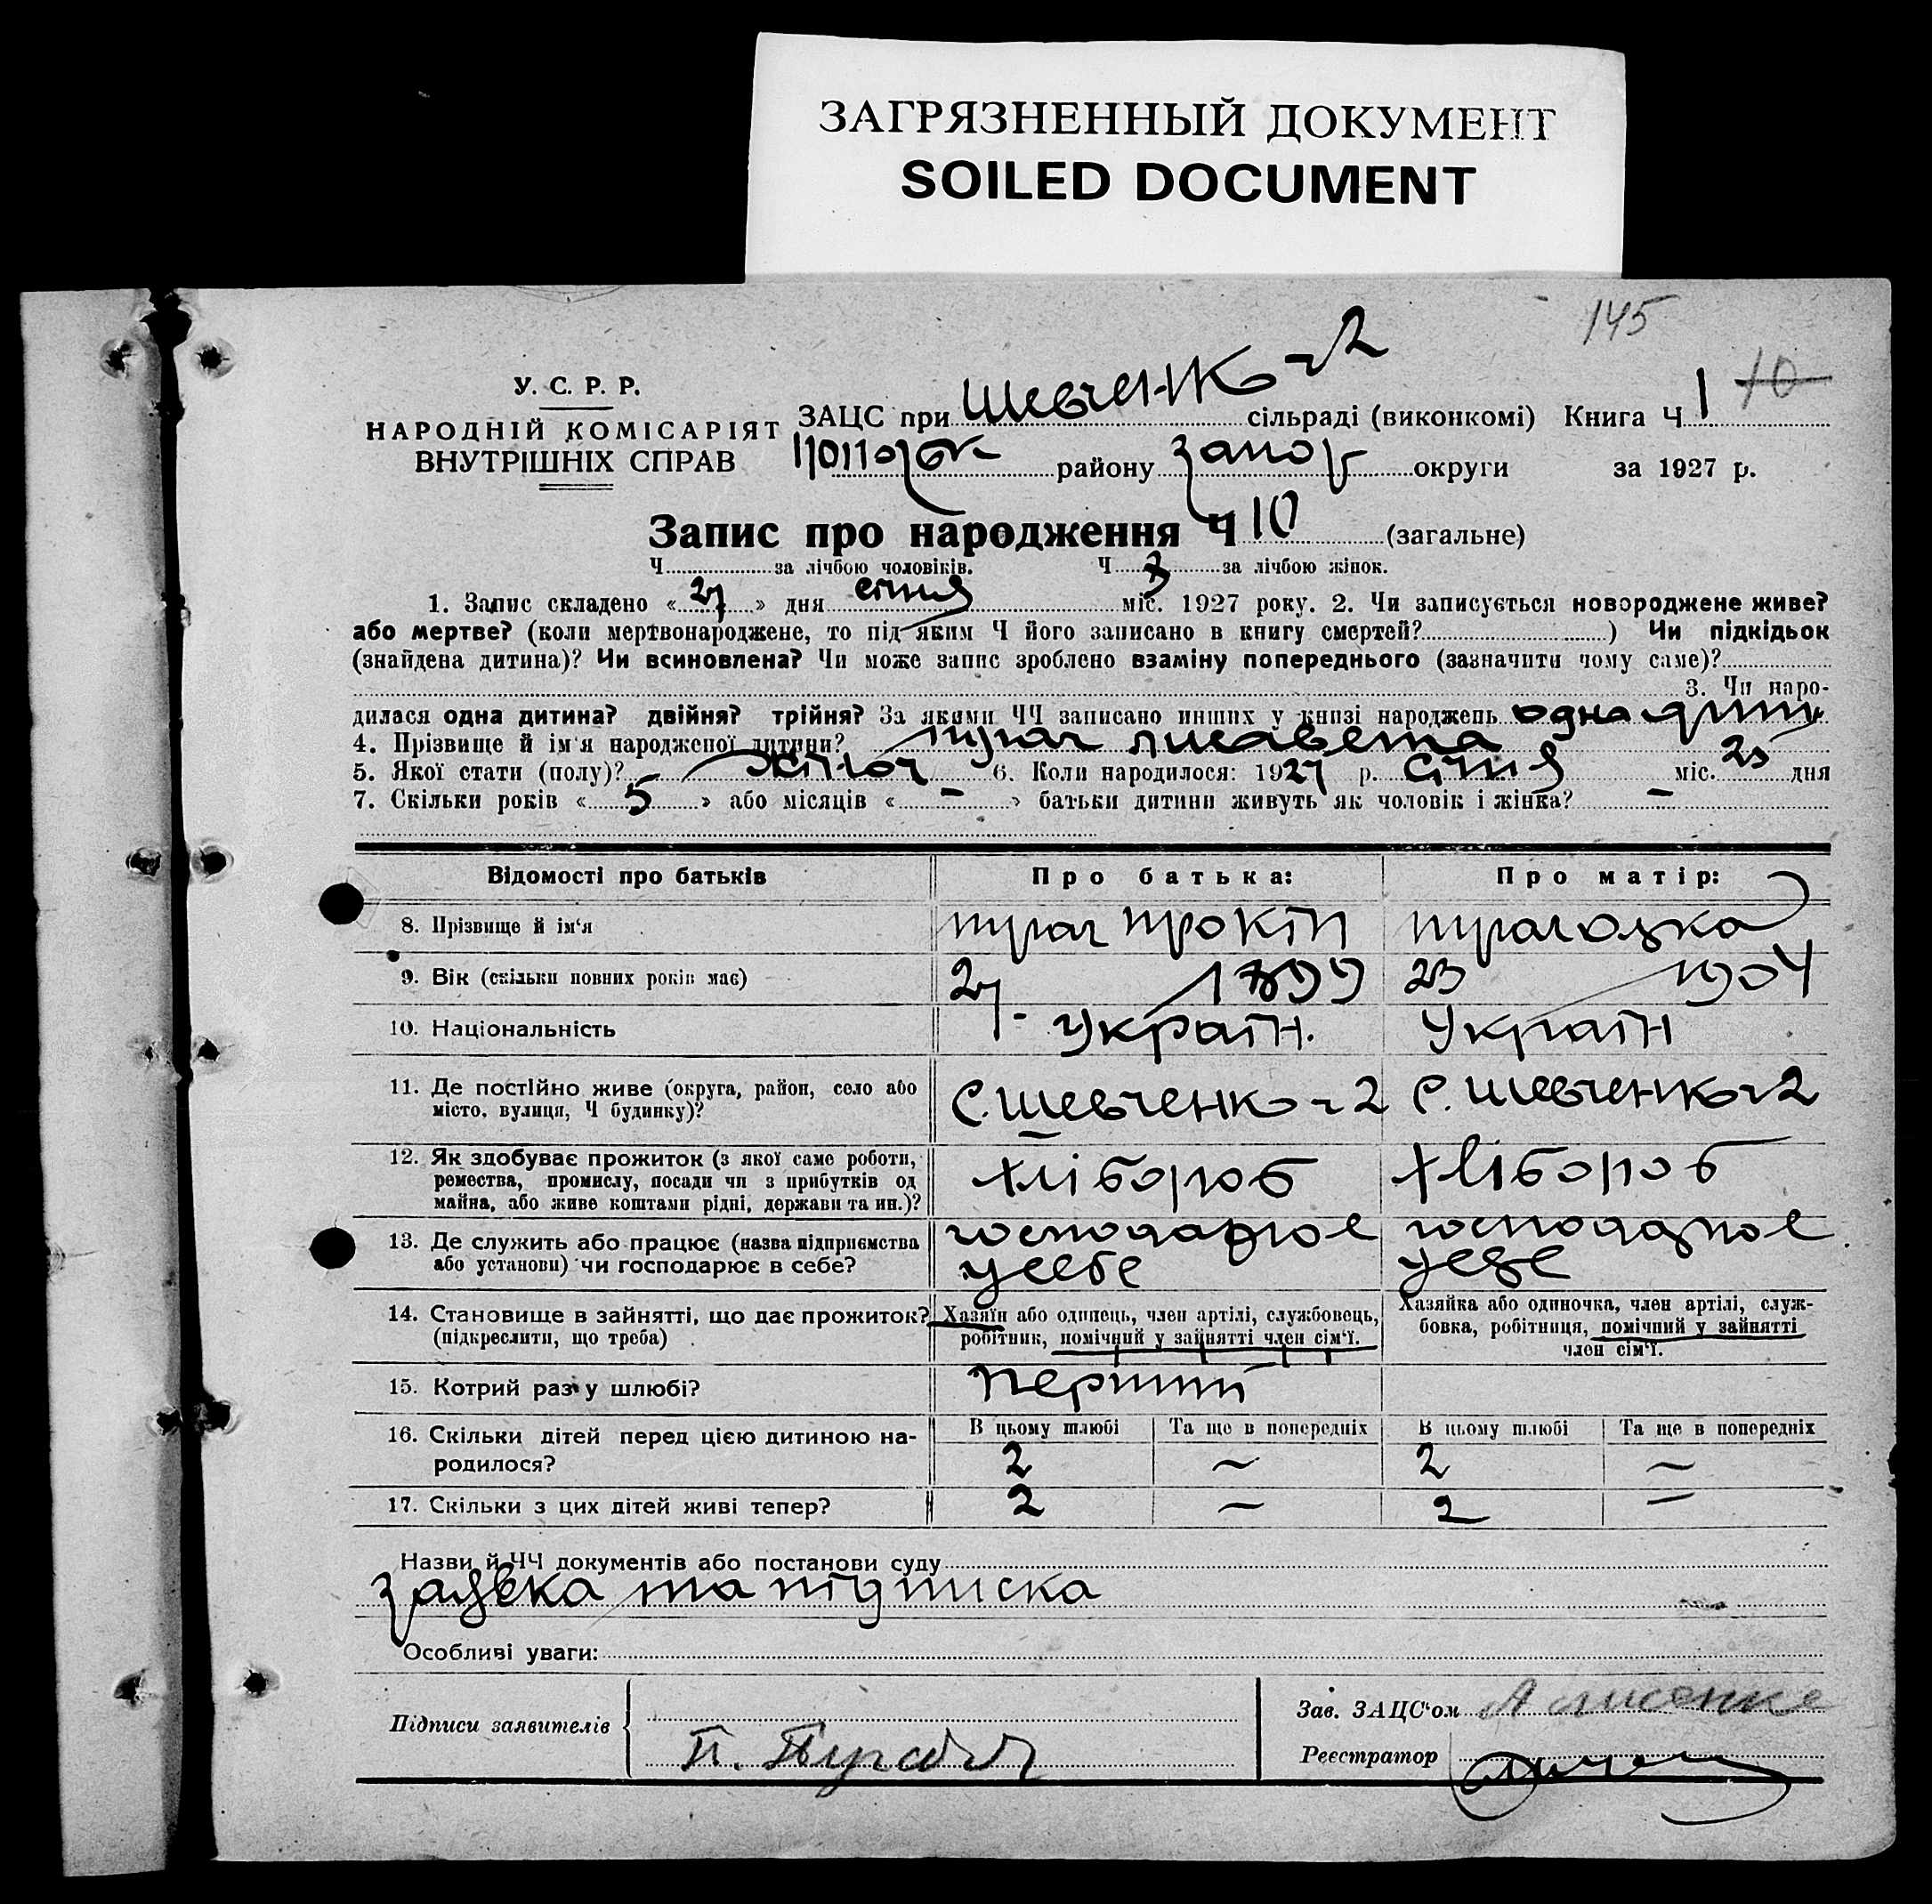 ЗАГРЯЗНЕННЫЙ ДОКУМЕНТ
SOILED DOCUMENT
145
У. С. Р. Р.
НАРОДНІЙ КОМІСАРІЯТ
ВНУТРІШНІХ СПРАВ
ЗАЦС при Шевченко 2 сільраді (виконкомі) Книга Ч 1 10
району Запор округи за 1927 р.
Запис про народження Ч 10 (загальне)
Ч за лічбою чоловіків. Ч за лічбою жінок.
1. Запис складено « 27 » дня січня міс. 1927 року. 2. Чи записується новороджене живе?
або мертве? (коли мертвонароджене, то під яким Ч його записано в книгу смертей? ) Чи підкідьок
(знайдена дитина)? Чи всиновлена? Чи може запис зроблено взаміну попереднього (зазначити чому саме)?
3. Чи наро-
дилася одна дитина? двійня? трійня? За якими ЧЧ записано инших у книзі народжень одна
4. Прізвище й ім'я народженої дитини? Лисавета
5. Якої стати (полу)? жіноч 6. Коли народилося: 1927 р. січня міс. 23 дня
7. Скільки років « 5 » або місяців « – » батьки дитини живуть як чоловік і жінка? –
Відомості про батьків Про батька: Про матір:
8. Прізвище й ім'я Прокіп
9. Вік (скільки повних років має) 27 1899 23 1904
10. Національність Україн. Україн
11. Де постійно живе (округа, район, село або
місто, вулиця, Ч будинку)?
С. Шевченко 2 С. Шевченко 2
12. Як здобуває прожиток (з якої саме роботи,
ремества, промислу, посади чи з прибутків од
майна, або живе коштами рідні, держави та ин.)?
Хлібороб Хлібороб
13. Де служить або працює (назва підприємства
або установи) чи господарює в себе?
господарює господарює
у себе у себе
14. Становище в зайнятті, що дає прожиток?
(підкреслити, що треба)
Хазяїн або одинець, член артілі, службовець,
робітник, помічний у зайнятті член сім'ї.
Хазяйка або одиночка, член артілі, служ-
бовка, робітниця, помічний у зайнятті
член сім'ї.
15. Котрий раз у шлюбі? Перший
16. Скільки дітей перед цією дитиною на-
родилося?
В цьому шлюбі Та ще в попередніх В цьому шлюбі Та ще в попередніх
2 – 2 –
17. Скільки з цих дітей живі тепер? 2 – 2 –
Назви й ЧЧ документів або постанови суду
заявка та підписка
Особливі уваги:
Підписи заявителів
Зав. ЗАЦС'ом
Реєстратор